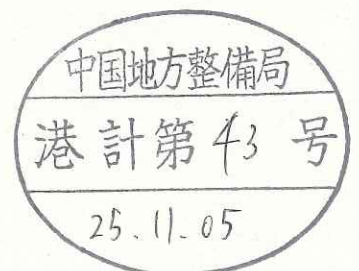 中国地方整備局
港計第43号
25.11.05